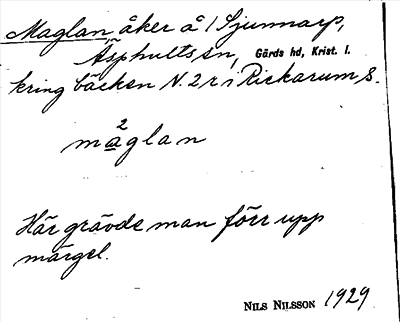 Maglan, åker å 1 Sjunnarp,
Äsphults sn, Gärds hd, Krist. l.
kring bäcken N. 2 r i Rickarum S.
2
maglan
Här grävde man förr upp
märgel.
NILS NILSSON 1929